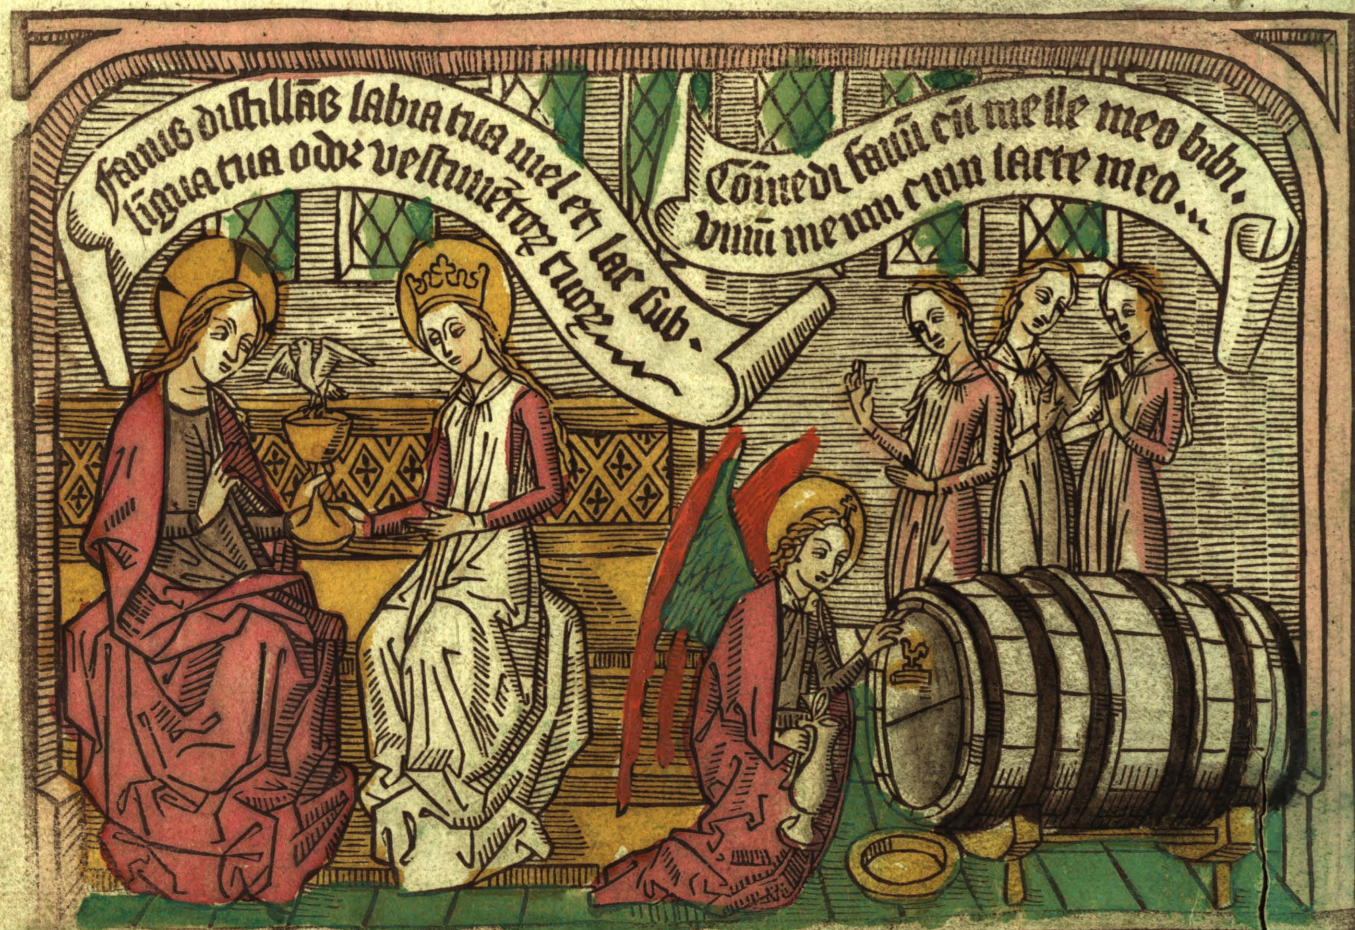 fauus distillās labia tua mel et lac sub.
līgua tua odor vestimētoꝝ tuoꝝ
Cōmedi fauū cū melle meo bibi.
vinū meum cum lacte meo...